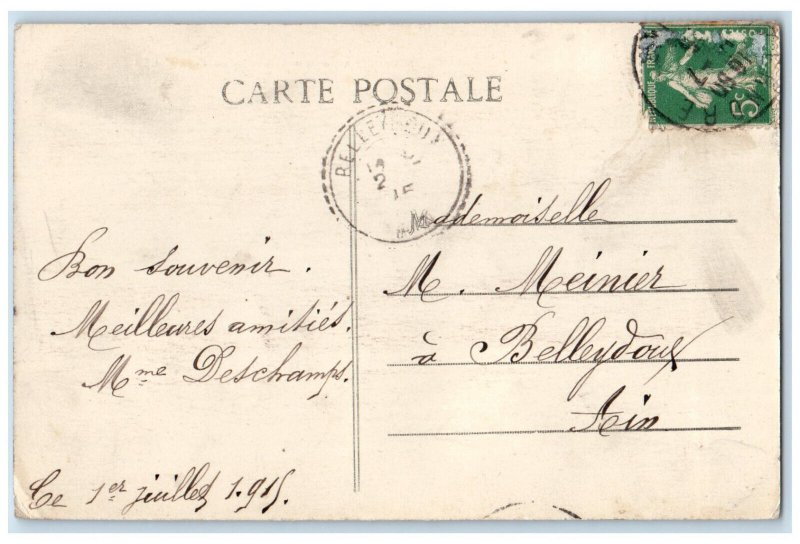 CARTE POSTALE
BELLEYDOUX
RÉPUBLIQUE FRANÇAISE
5c
Bon souvenir.
Meilleures amitiés.
Mme Deschamps.
Ce 1er juillet 1.915.
Mademoiselle
M. Meinier
à Belleydoux
Ain